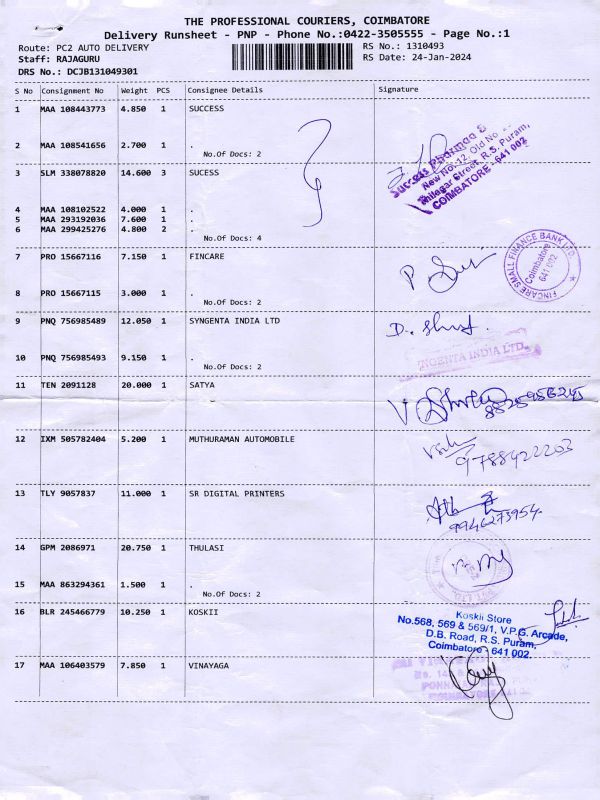 THE PROFESSIONAL COURIERS, COIMBATORE
Delivery Runsheet - PNP - Phone No.:0422-3505555 - Page No.:1
Route: PC2 AUTO DELIVERY
RS No.: 1310493
Staff: RAJAGURU
RS Date: 24-Jan-2024
DRS No.: DCJB131049301
S No Consignment No Weight PCS Consignee Details Signature
1 MAA 108443773 4.850 1 SUCCESS
2 MAA 108541656 2.700 1 .
No.Of Docs: 2
Success Pharmaa &
New No.12, Old No
Street, R.S. Puram,
COIMBATORE - 641 002
3 SLM 338078820 14.600 3 SUCESS
4 MAA 108102522 4.000 1 .
5 MAA 293192036 7.600 1 .
6 MAA 299425276 4.800 2 .
No.Of Docs: 4
7 PRO 15667116 7.150 1 FINCARE
FINCARE SMALL FINANCE BANK LTD.
Coimbatore
641 002
8 PRO 15667115 3.000 1 .
No.Of Docs: 2
9 PNQ 756985489 12.050 1 SYNGENTA INDIA LTD
10 PNQ 756985493 9.150 1 .
No.Of Docs: 2
NGENTA INDIA LTD.
11 TEN 2091128 20.000 1 SATYA
12 IXM 505782404 5.200 1 MUTHURAMAN AUTOMOBILE
9788422203
13 TLY 9057837 11.000 1 SR DIGITAL PRINTERS
9946273954
14 GPM 2086971 20.750 1 THULASI
15 MAA 863294361 1.500 1 .
No.Of Docs: 2
16 BLR 245466779 10.250 1 KOSKII
Koskii Store
No.568, 569 & 569/1, V.P.G. Arcade,
D.B. Road, R.S. Puram,
Coimbatore - 641 002.
17 MAA 106403579 7.850 1 VINAYAGA